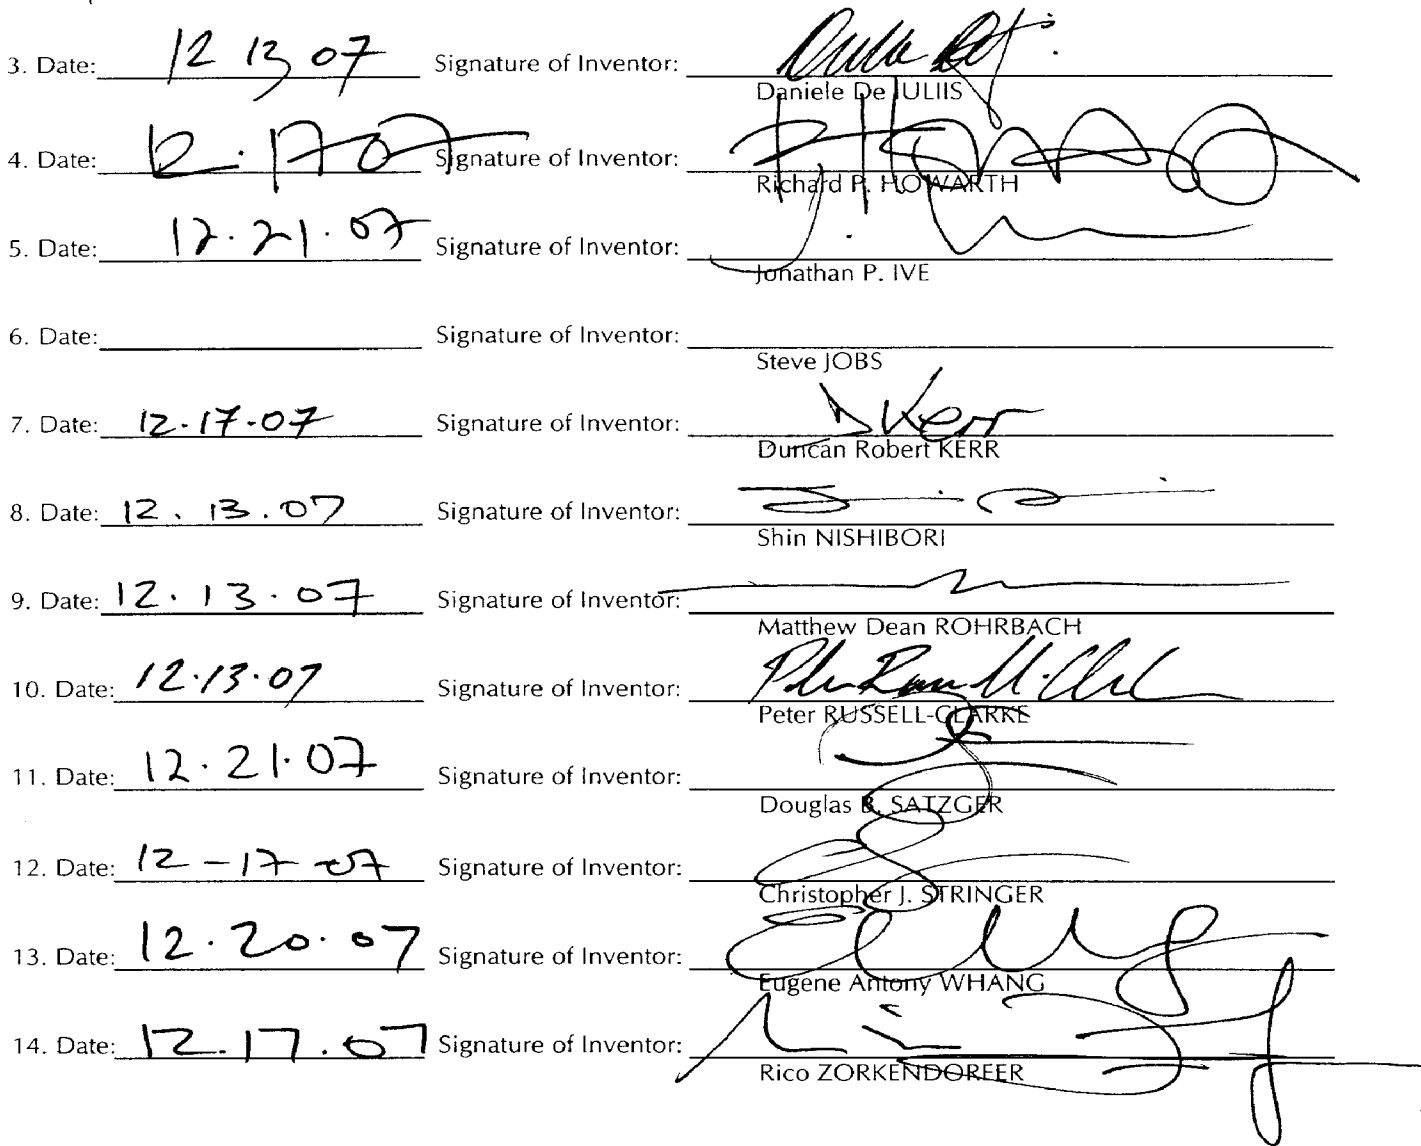 3. Date: 12 13 07 Signature of Inventor:
Daniele De IULIIS
4. Date: 12.17 07 Signature of Inventor:
Richard P. HOWARTH
5. Date: 12.21.07 Signature of Inventor:
Jonathan P. IVE
6. Date: Signature of Inventor:
Steve JOBS
7. Date: 12.17.07 Signature of Inventor: D Kerr
Duncan Robert KERR
8. Date: 12.13.07 Signature of Inventor:
Shin NISHIBORI
9. Date: 12.13.07 Signature of Inventor:
Matthew Dean ROHRBACH
10. Date: 12.13.07 Signature of Inventor:
Peter RUSSELL-CLARKE
11. Date: 12.21.07 Signature of Inventor:
Douglas B. SATZGER
12. Date: 12-17-07 Signature of Inventor:
Christopher J. STRINGER
13. Date: 12.20.07 Signature of Inventor:
Eugene Antony WHANG
14. Date: 12.17.07 Signature of Inventor:
Rico ZORKENDORFER